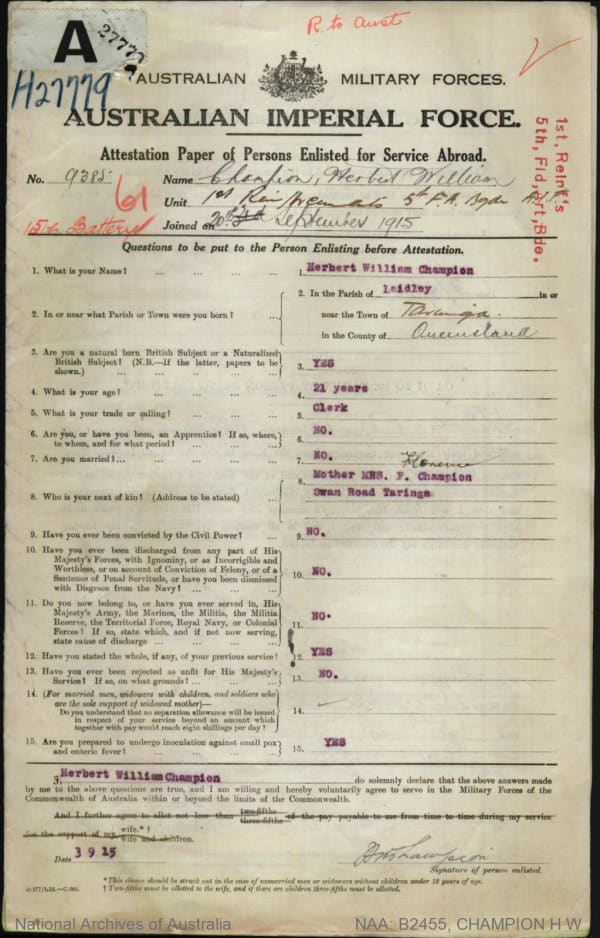 A
27779
H27779
R. to Aust
AUSTRALIAN MILITARY FORCES.
AUSTRALIAN IMPERIAL FORCE.
Attestation Paper of Persons Enlisted for Service Abroad.
No. 9385 Name Champion, Herbert William
61
Unit 1st Rein 5th F.A. Bgde A.I.F.
15th Battery
Joined on 20th September 1915
1st, Reint's
5th, Fld, Art, Bde.
Questions to be put to the Person Enlisting before Attestation.
1. What is your Name? ... ... ... 1. Herbert William Champion
2. In or near what Parish or Town were you born? ... 2. In the Parish of Laidley in or
near the Town of Taringa.
in the County of Queensland
3. Are you a natural born British Subject or a Naturalized
British Subject? (N.B.—If the latter, papers to be
shown.) ... ... ... 3. YES
4. What is your age? ... ... ... 4. 21 years
5. What is your trade or calling? ... ... ... 5. Clerk
6. Are you, or have you been, an Apprentice? If so, where,
to whom, and for what period? ... ... 6. NO.
7. Are you married? ... ... ... ... 7. NO.
Florence
8. Who is your next of kin? (Address to be stated) ... 8. Mother MRS. F. Champion
Swan Road Taringa
9. Have you ever been convicted by the Civil Power? ... 9. NO.
10. Have you ever been discharged from any part of His
Majesty's Forces, with Ignominy, or as Incorrigible and
Worthless, or on account of Conviction of Felony, or of a
Sentence of Penal Servitude, or have you been dismissed
with Disgrace from the Navy? ... ... 10. NO.
11. Do you now belong to, or have you ever served in, His
Majesty's Army, the Marines, the Militia, the Militia
Reserve, the Territorial Force, Royal Navy, or Colonial
Forces? If so, state which, and if not now serving,
state cause of discharge ... ... ... 11. NO.
12. Have you stated the whole, if any, of your previous service? 12. YES
13. Have you ever been rejected as unfit for His Majesty's
Service? If so, on what grounds? ... ... 13. NO.
14. (For married men, widowers with children, and soldiers who
are the sole support of widowed mother)—
Do you understand that no separation allowance will be issued
in respect of your service beyond an amount which
together with pay would reach eight shillings per day? 14.
15. Are you prepared to undergo inoculation against small pox
and enteric fever? ... ... ... 15. YES
I, Herbert William Champion do solemnly declare that the above answers made
by me to the above questions are true, and I am willing and hereby voluntarily agree to serve in the Military Forces of the
Commonwealth of Australia within or beyond the limits of the Commonwealth.
And I further agree to allot not less than two-fifths three-fifths of the pay payable to me from time to time during my service
for the support of my wife.*†
wife and children.
Date 3 9 15
Signature of person enlisted.
*This clause should be struck out in the case of unmarried men or widowers without children under 18 years of age.
† Two-fifths must be allotted to the wife, and if there are children three-fifths must be allotted.
National Archives of Australia
NAA: B2455, CHAMPION H W